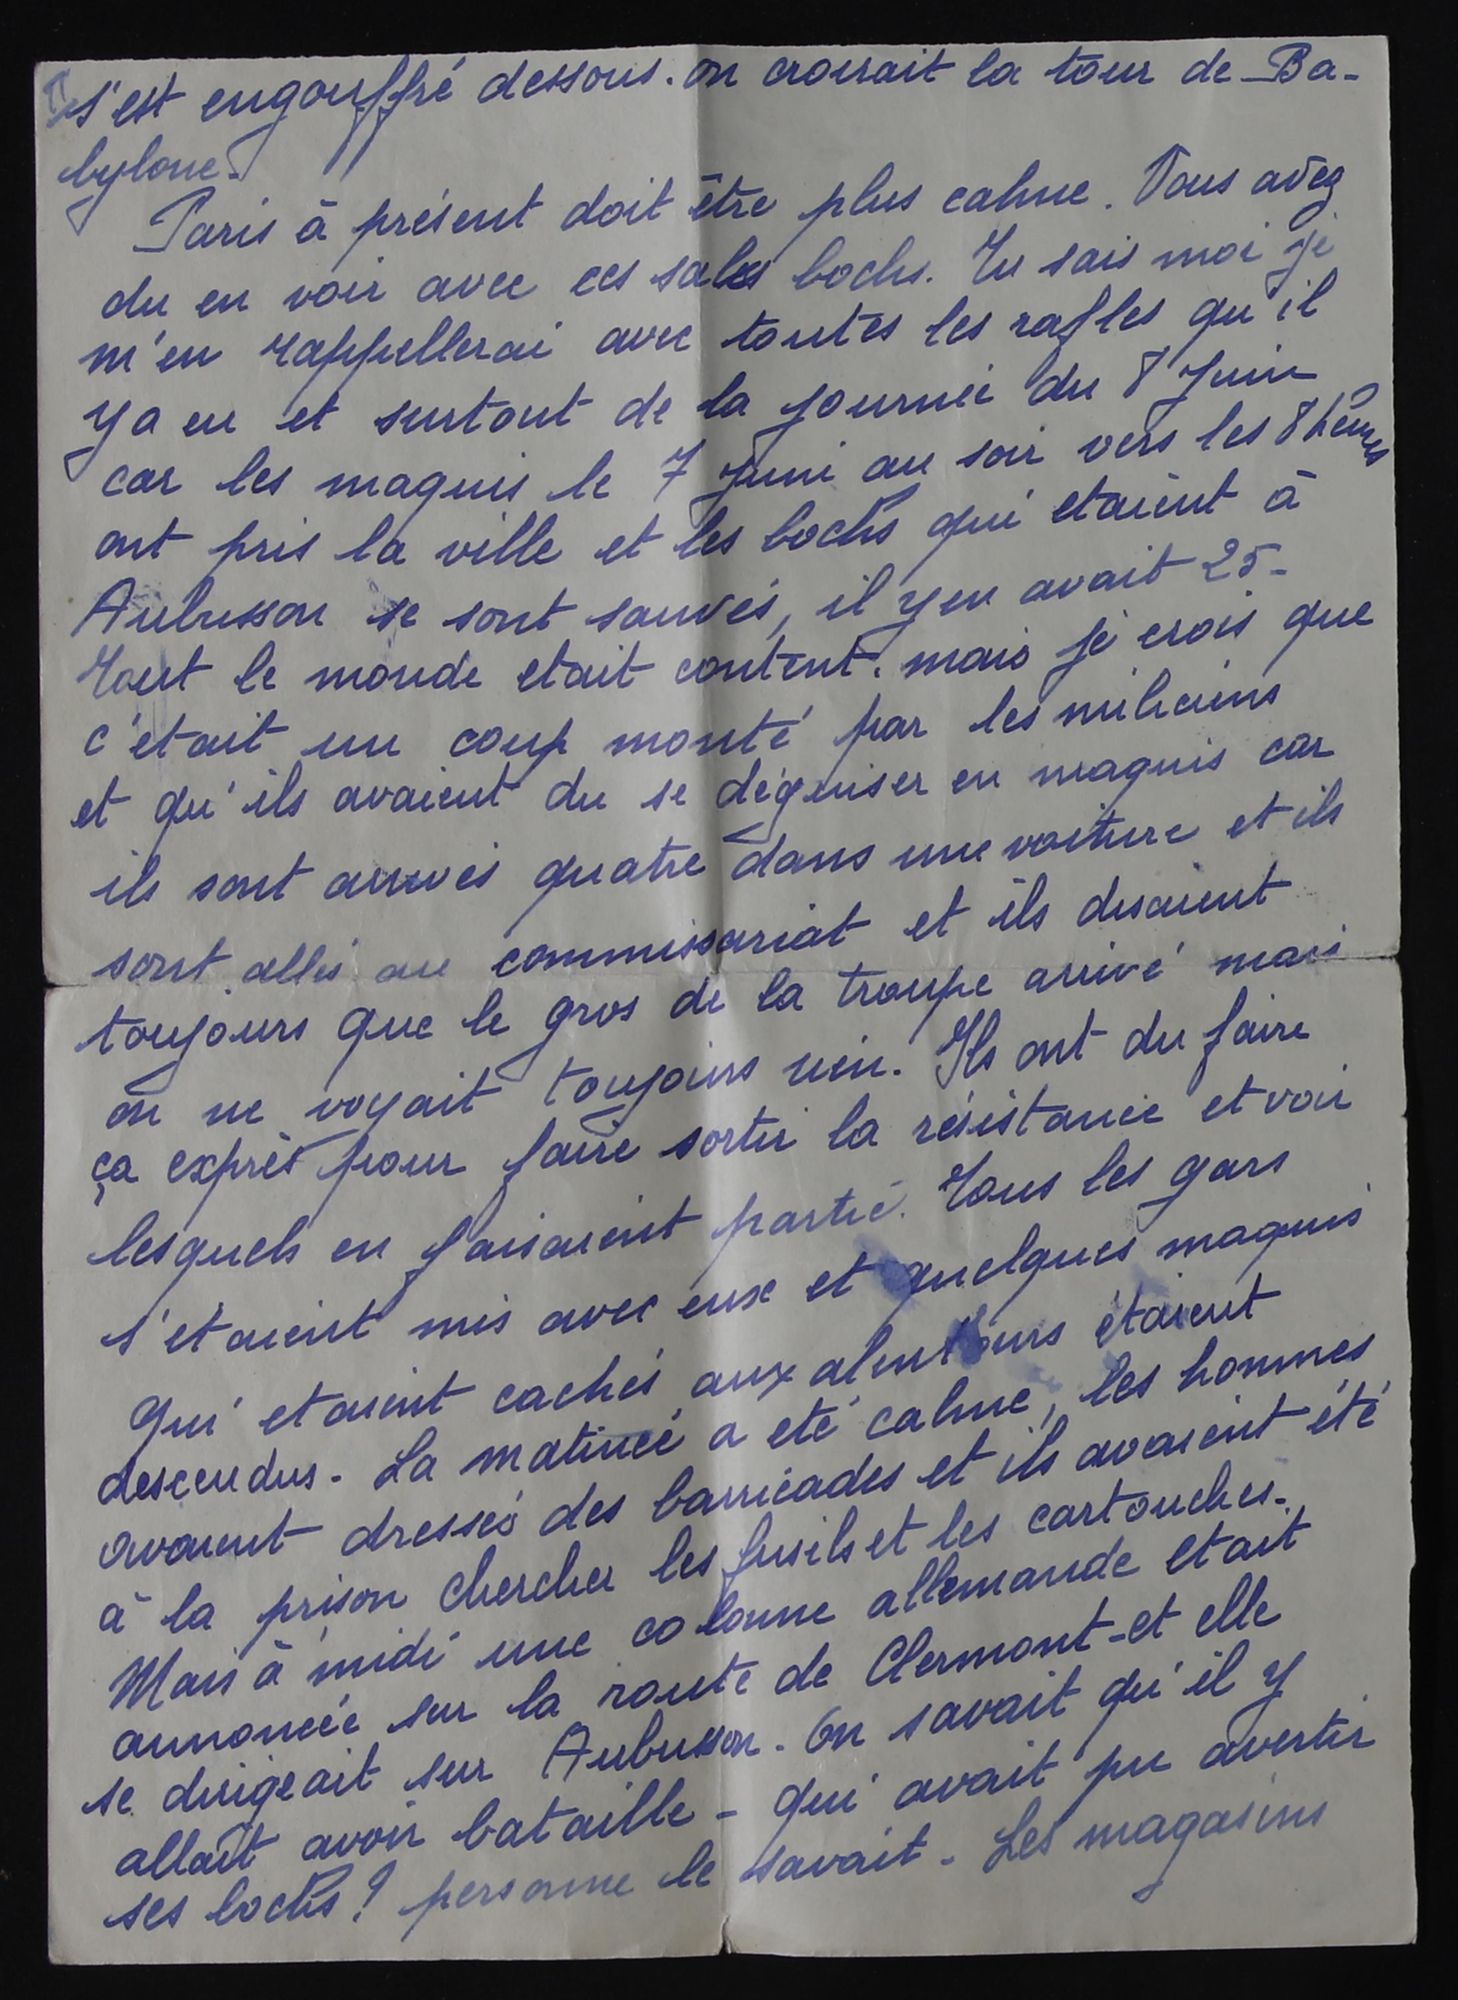 s'est engouffré dessous. on croirait la tour de Ba-
bylone.
Paris à présent doit être plus calme. Vous avez
du en voir avec ces sales bochs. Tu sais moi je
m'en rappellerai avec toutes les rafles qu'il
y a eu et surtout de la journée du 8 Juin
car les maquis le 7 Juin au soir vers les 8 heures
ont pris la ville et les bochs qui etaient à
Aubusson se sont sauvés, il y en avait 25-
Tout le monde etait content. mais je crois que
c'etait un coup monté par les miliciens
et qu'ils avaient du se déguiser en maquis car
ils sont arrivés quatre dans une voiture et ils
sont allés au commissariat et ils disaient
toujours que le gros de la troupe arrivé mais
on ne voyait toujours rien. Ils ont du faire
ça exprès pour faire sortir la résistance et voir
lesquels en faisaient partie. Tous les gars
s'etaient mis avec eux et quelques maquis
qui etaient cachés aux alentours étaient
descendus. La matinée a eté calme, les hommes
avaient dressés des barricades et ils avaient été
à la prison chercher les fusils et les cartouches.
Mais à midi une colonne allemande etait
annoncée sur la route de Clermont-et elle
se dirigeait sur Aubusson. On savait qu'il y
allait avoir bataille - qui avait pu avertir
ses bochs? personne le savait. Les magasins